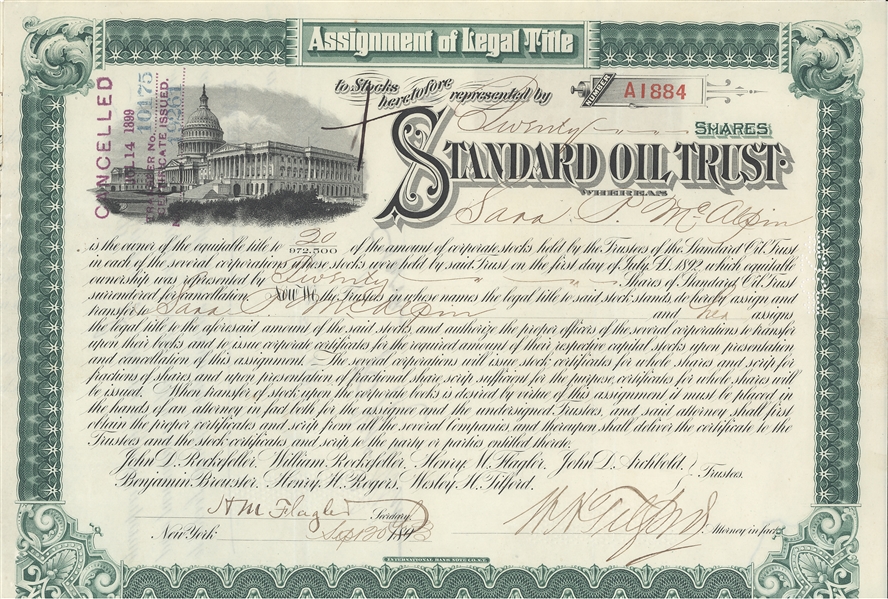 Assignment of Legal Title
to Stocks heretofore represented by
NUMBER A1884
Twenty SHARES
STANDARD OIL TRUST
WHEREAS
Sara P. McAlpin
is the owner of the equitable title to 20/972.500 of the amount of corporate stocks held by the Trustees of the Standard Oil Trust
in each of the several corporations whose stocks were held by said Trust on the first day of July A.D. 1892, which equitable
ownership was represented by Twenty Shares of Standard Oil Trust
surrendered for cancellation. Now We the Trustees in whose names the legal title to said stock stands, do hereby assign and
transfer to Sara P. McAlpin and her assigns
the legal title to the aforesaid amount of the said stocks, and authorize the proper officers of the several corporations to transfer
upon their books and to issue corporate certificates for the required amount of their respective capital stocks upon presentation
and cancellation of this assignment. The several corporations will issue stock certificates for whole shares and scrip for
fractions of shares and upon presentation of fractional share scrip sufficient for the purpose, certificates for whole shares will
be issued. When transfer of stock upon the corporate books is desired by virtue of this assignment it must be placed in
the hands of an attorney in fact both for the assignee and the undersigned Trustees, and said attorney shall first
obtain the proper certificates and scrip from all the several Companies, and thereupon shall deliver the certificate to the
Trustees and the stock certificates and scrip to the party or parties entitled thereto.
John D. Rockefeller, William Rockefeller, Henry M. Flagler, John D. Archbold,
Benjamin Brewster, Henry H. Rogers, Wesley H. Tilford, } Trustees.
H M Flagler Secretary.
W H Tilford Attorney in fact.
New York Sep 20 1893
INTERNATIONAL BANK NOTE CO. N.Y.
CANCELLED
14 1899
No. 10175
CERTIFICATE ISSUED.